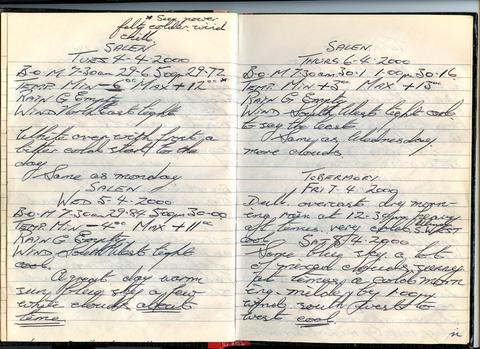 * Sun power
felt colder wind
chill
SALEN
TUES 4-4-2000
B-O-M 7-30am 29-6 5-00pm 29-72
TEMP Min -6°° Max +12°° *
RAIN G Empty
WIND North East light
White over with frost a
bitter cold start to the
day
Same as monday
SALEN
WED 5-4-2000
B-O-M 7-30am 29-84 5-00pm 30-00
TEMP Min -4°° Max +11°°
RAIN G Empty
WIND South West light
cool.
A great day warm
sun, blue sky a few
white clouds about
time
SALEN
THURS 6-4-2000
B-O-M 7-30am 30-1 1-00pm 30-16
TEMP Min +3°° Max +13°°
RAIN G Empty
WIND South West light cold
to say the least
Same as Wednesday
more clouds
TOBERMORY
FRI 7-4-2000
Dull overcast dry morn-
ing rain at 12-30pm heavy
at times very cold S.WEST
cool SAT 8/4-2000
Some blue sky a lot
of mixed clouds, sunny
at times, a cold morn
ing milder by 1-00pm
winds south west to
west cool